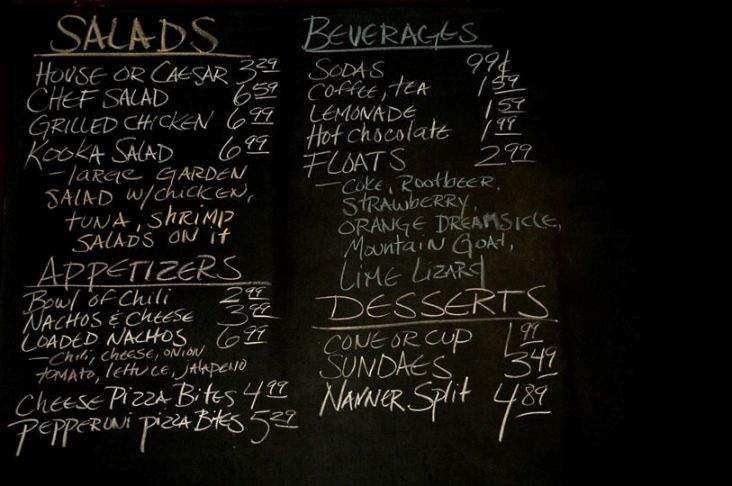 SALADS
HOUSE OR CAESAR 3.29
CHEF SALAD 6.59
GRILLED CHICKEN 6.99
KOOKA SALAD 6.99
- LARGE GARDEN
SALAD W/CHICKEN,
TUNA, SHRIMP
SALADS ON IT
APPETIZERS
Bowl of Chili 2.99
NACHOS & CHEESE 3.99
LOADED NACHOS 6.99
- Chili, cheese, onion
tomato, lettuce, jalapeno
Cheese Pizza Bites 4.99
Pepperoni pizza Bites 5.29
BEVERAGES
SODAS 99¢
COFFEE, TEA 1.59
LEMONADE 1.59
Hot chocolate 1.99
FLOATS 2.99
- Coke, Rootbeer,
STRAWBERRY,
ORANGE DREAMSICLE,
Mountain Goat,
LIME LIZARD
DESSERTS
CONE OR CUP 1.99
SUNDAES 3.49
NANNER Split 4.89